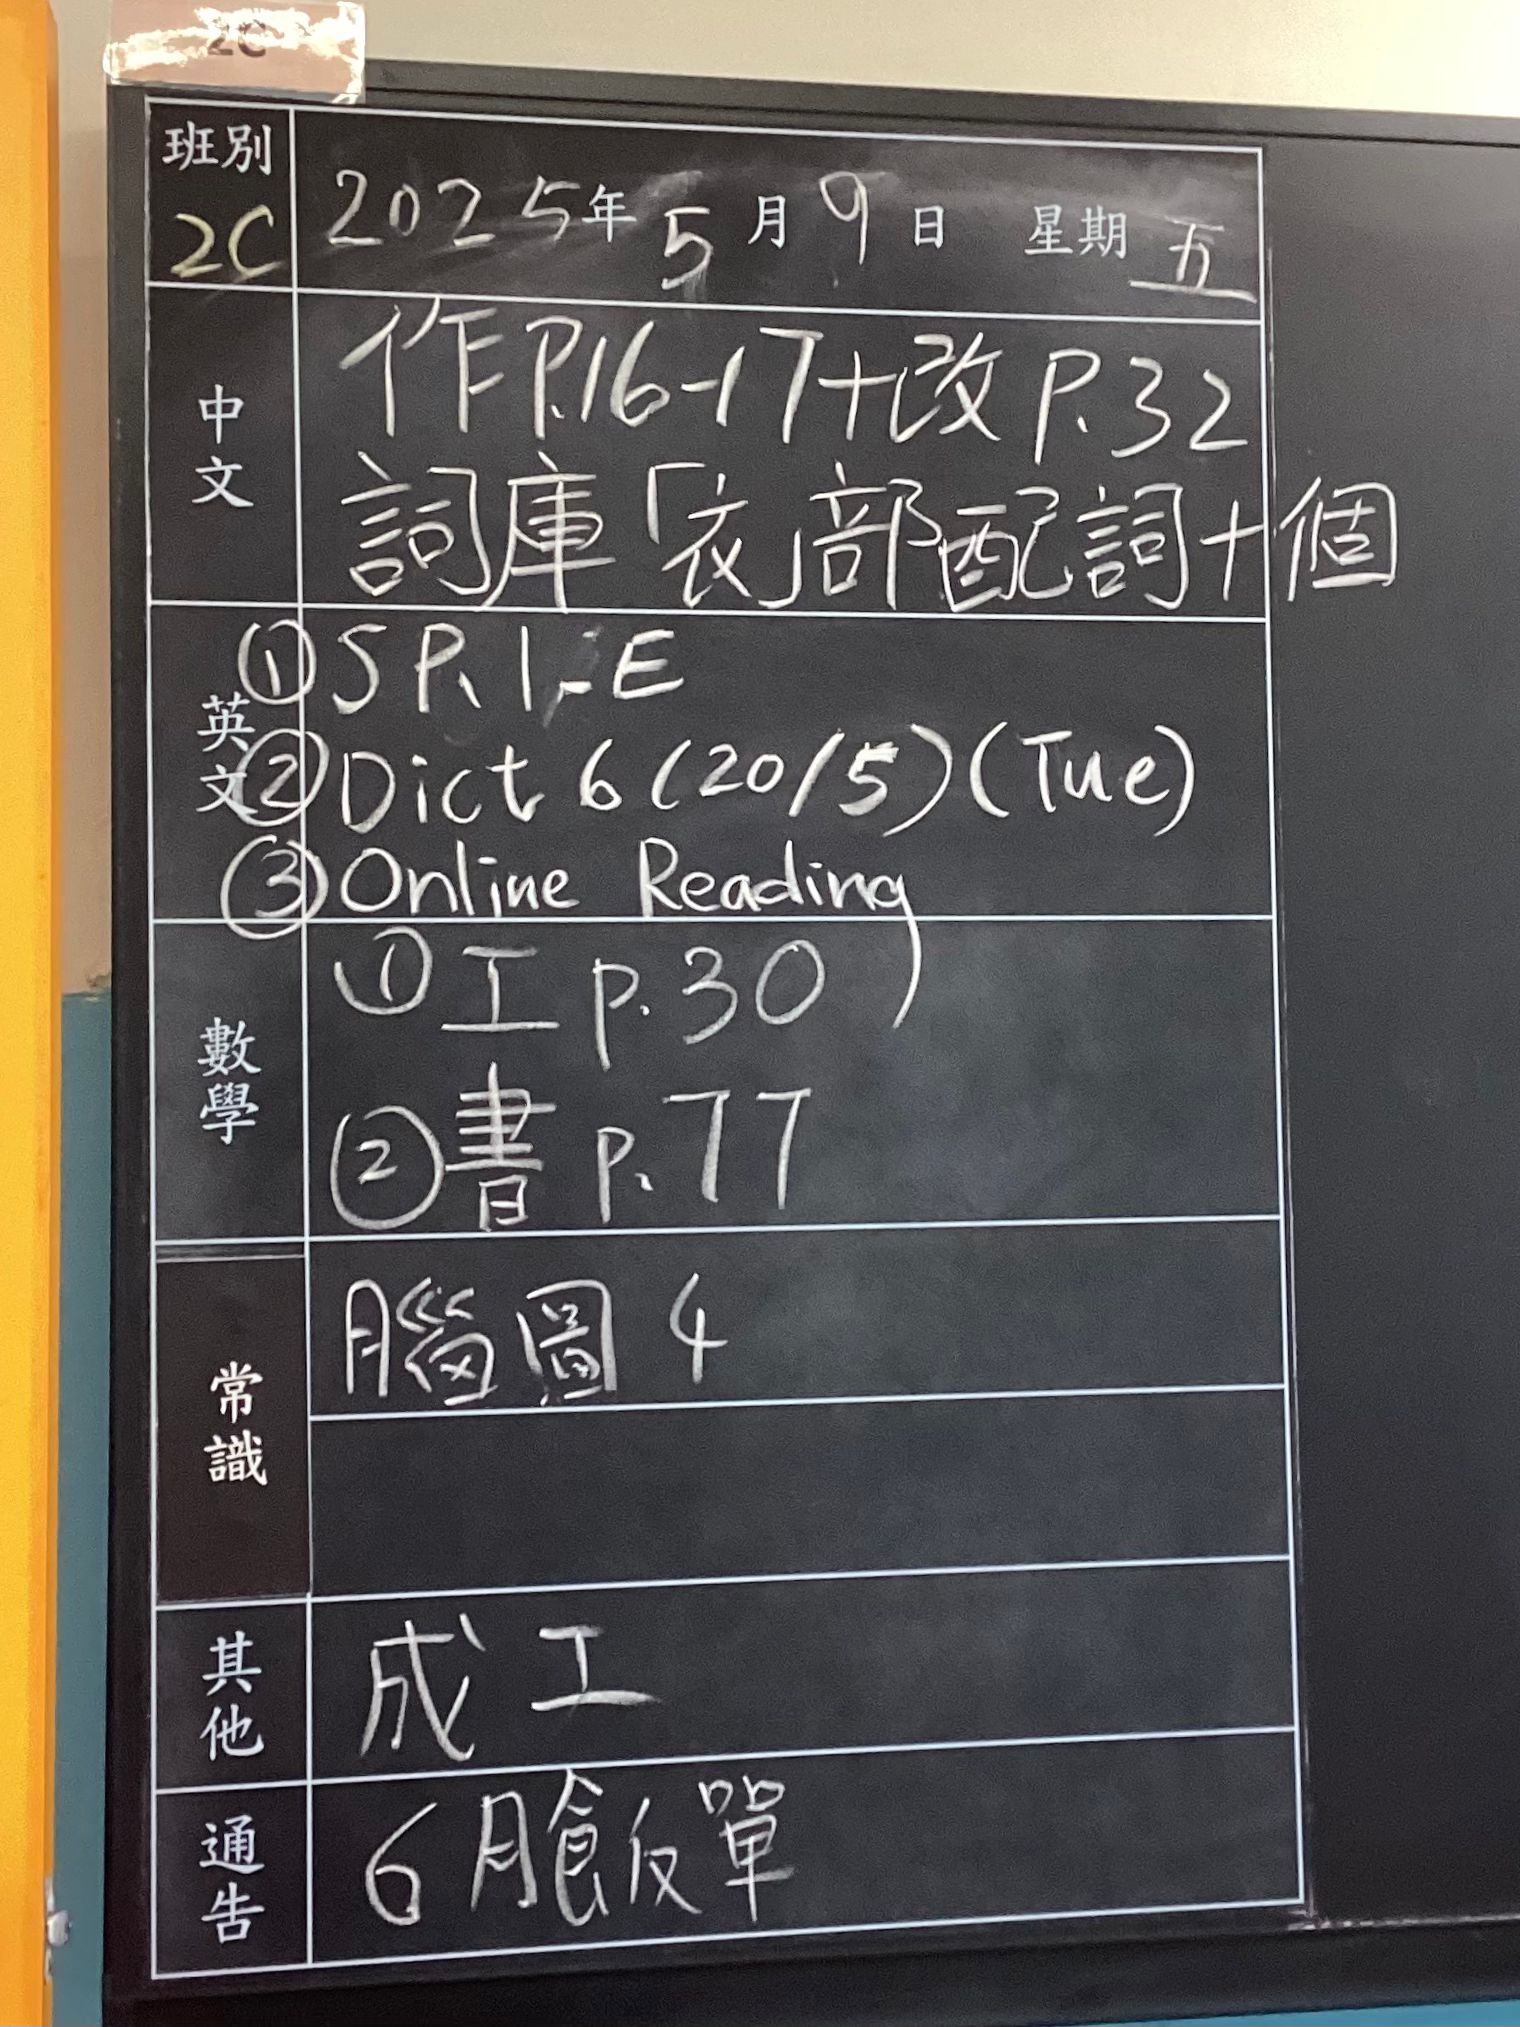 2C
班別
2C
2025年5月9日 星期五
中文
作P.16-17+改P.32
詞庫「衣」部配詞十個
英文
①SP.1.E
②Dict 6(20/5)(Tue)
③Online Reading
數學
①工 p.30
②書 p.77
常識
腦圖4
其他
成工
通告
6月飯單